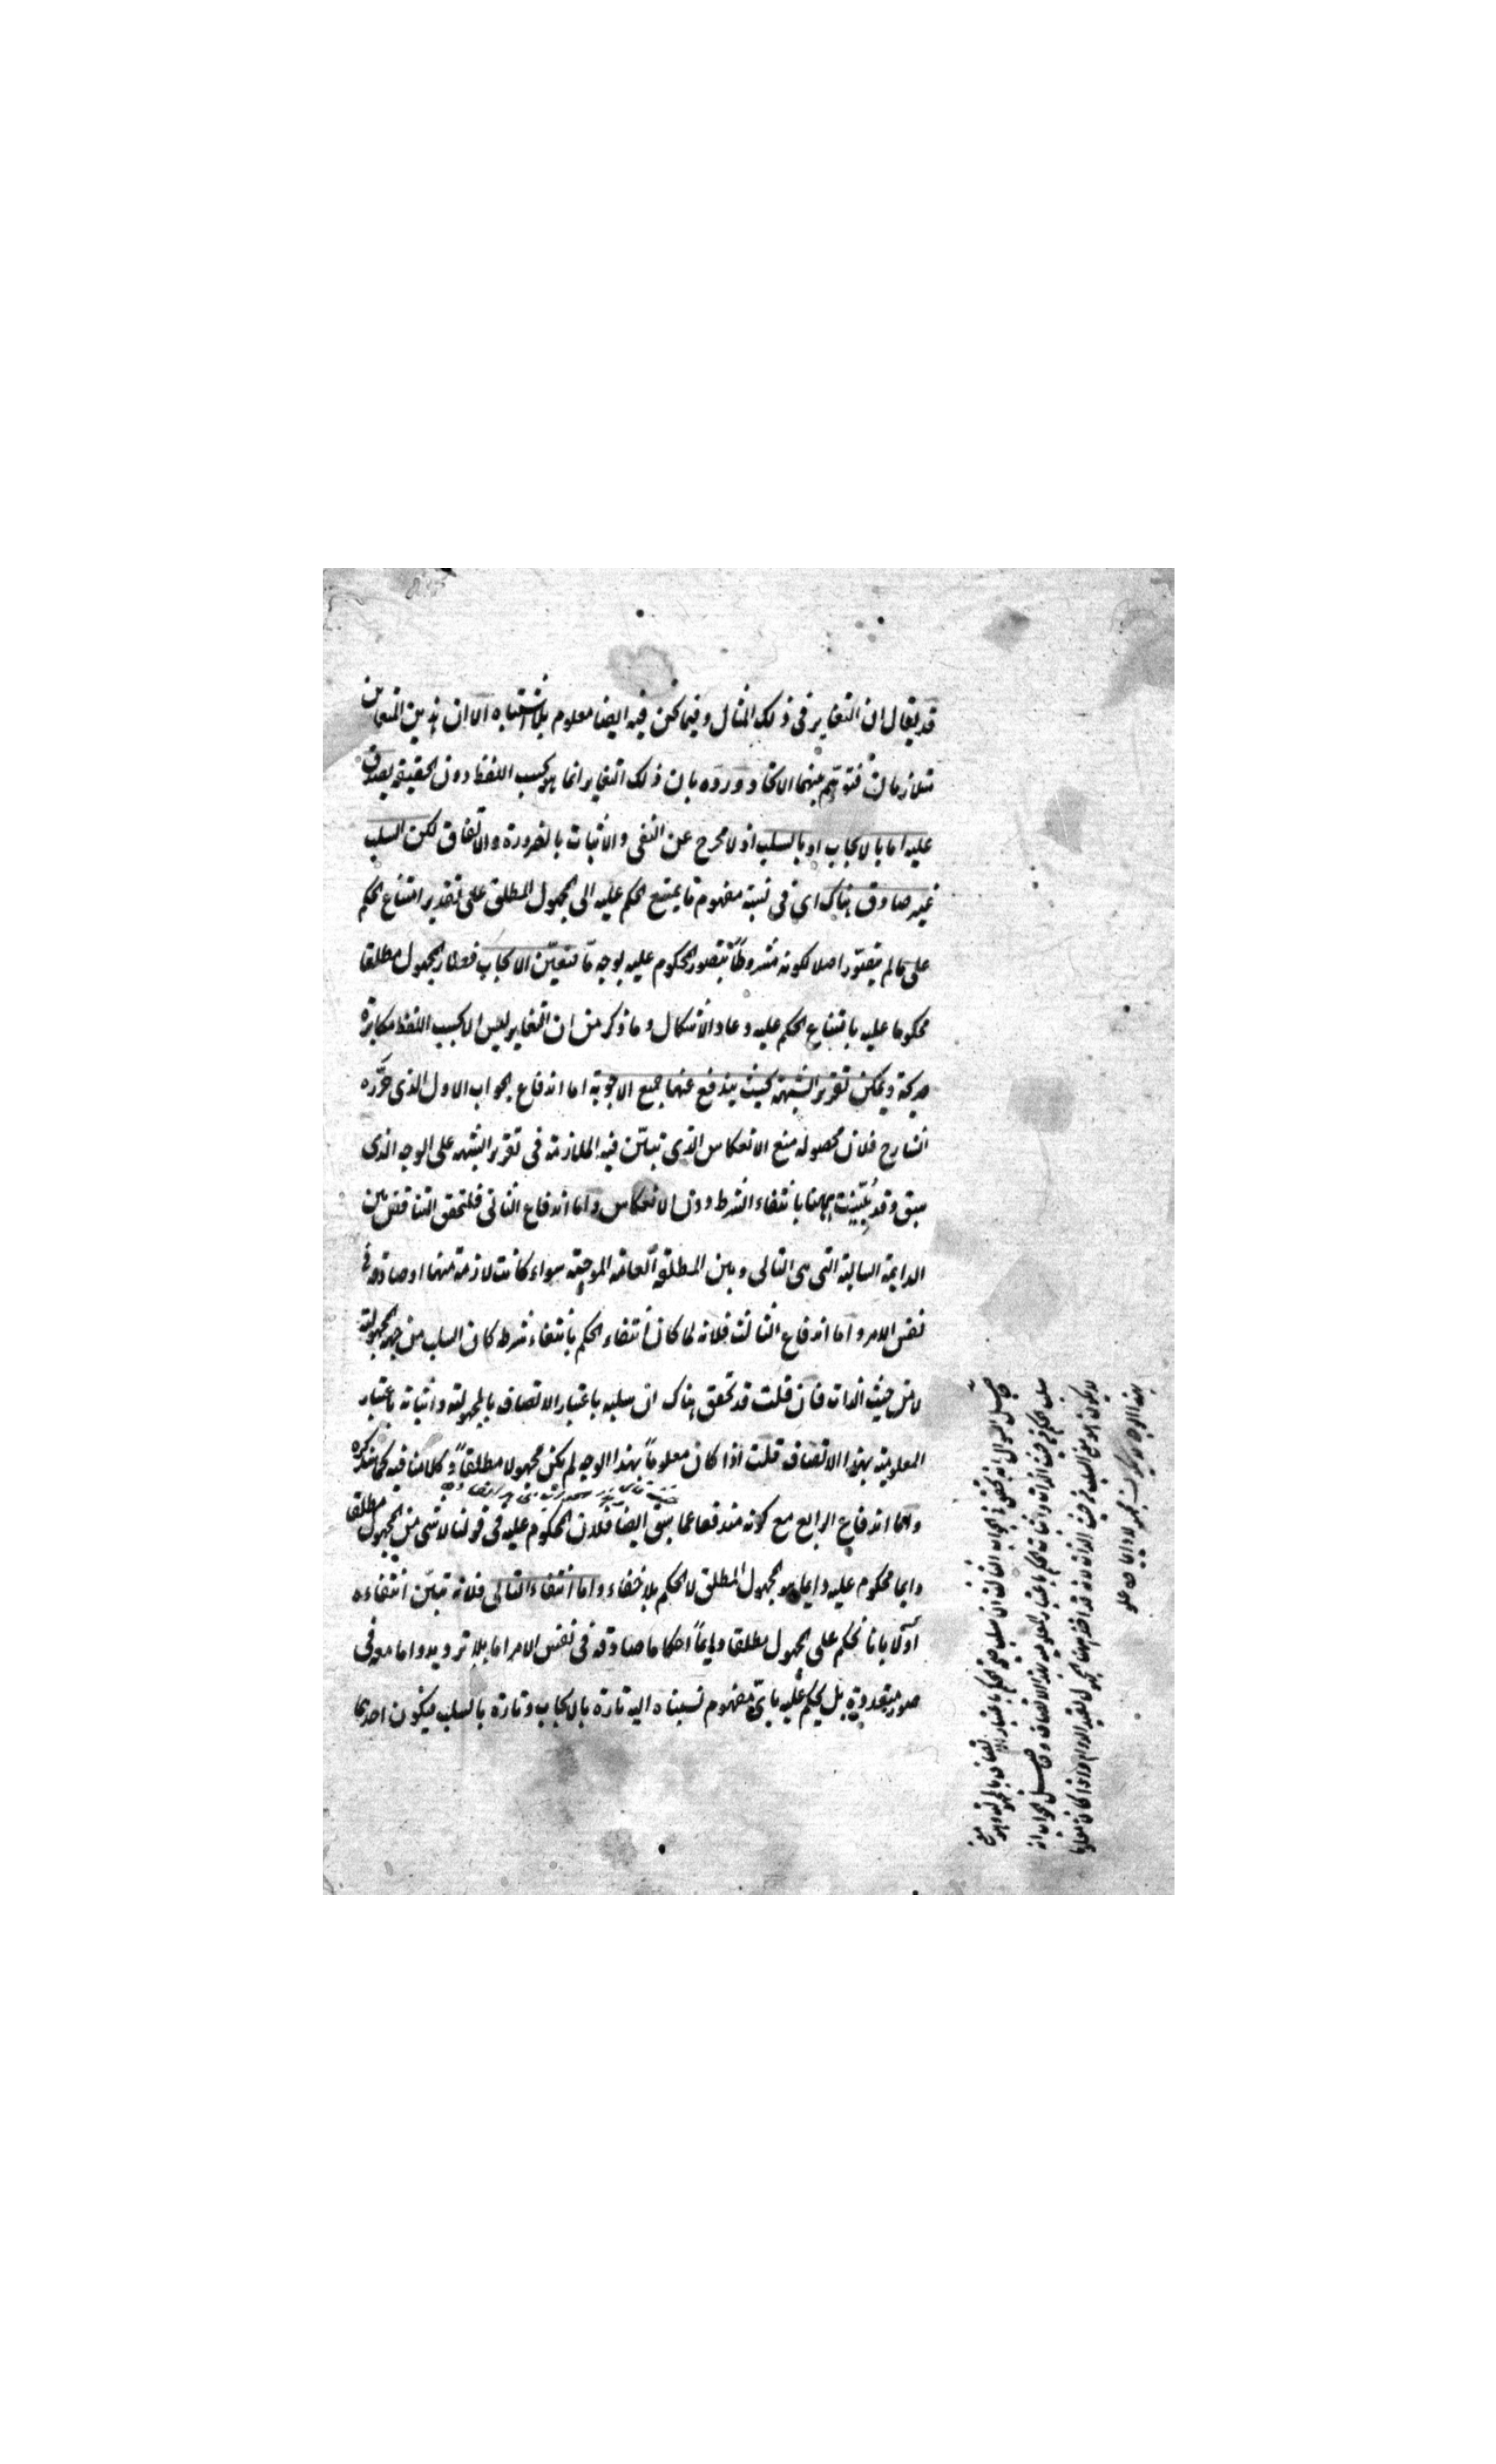 قد يقال ان التغاير فى ذلك المثال وفيما نحن فيه ايضا معلوم بلا اشتباه الا ان هذين المتغايرين
متلازمان فتوهم بينهما الاتحاد ورده بان ذلك التغاير انما هو بحسب اللفظ دون الحقيقة يصدق
عليه اما بالايجاب او بالسلب اذ لا مخرج عن النفى والاثبات بالضرورة والاتفاق لكن السلب
غير صادق هناك اى فى نسبة مفهوم ما يمتنع الحكم عليه الى المجهول المطلق على تقدير امتناع الحكم
على ما لم يتصور اصلا لكونه مشروطا بتصور المحكوم عليه بوجه ما فتعين الايجاب فصار المجهول مطلقا
محكوما عليه بامتناع الحكم عليه وعاد الاشكال وما ذكر من ان التغاير ليس الا بحسب اللفظ مكابرة
صريحة ويمكن تقرير الشبهة بحيث يندفع عنها جميع الاجوبة اما اندفاع الجواب الاول الذى حرره
الشارح فلان محصوله منع الانعكاس الذى تبين فيه الملازمة فى تقرير الشبهة على الوجه الذى
سبق وقد بينت ههنا بانتفاء الشرط دون الانعكاس واما اندفاع الثانى فلتحقق التناقض بين
الدايمة السالبة التى هى التالى وبين المطلقة العامة الموجبة سواء كانت لازمة منها او صادقة فى
نفس الامر واما اندفاع الثالث فلانه لما كان انتفاء الحكم بانتفاء شرط كان السلب من جهة المجهولية
لا من حيث الذات فان قلت قد تحقق هناك ان سلبه باعتبار الاتصاف بالمجهولية واثباته باعتبار
المعلومية بهذا الاتصاف قلت اذا كان معلوما بهذا الوجه لم يكن مجهولا مطلقا وكلامنا فيه كما سنذكره
واما اندفاع الرابع مع كونه مندفعا عما سبق ايضا فلان المحكوم عليه فى قولنا لا شى من المجهول مطلقا
دايما محكوم عليه دايما هو المجهول المطلق لا الحكم بلا خفاء واما انتفاء التالى فلانه تبين انتفاءه
اولا بانا نحكم على المجهول مطلقا دايما احكاما صادقة فى نفس الامر اما بلا ترديد واما معه فى
صور متعددة بل يحكم عليه باى مفهوم نسبناه اليه تارة بالايجاب وتارة بالسلب فيكون احديهما
حاصل السوال انه تحقق فى الجواب الثالث ان سلب صحة الحكم باعتبار الاتصاف بالمجهولية
سلب الحكم من حيث الذات واثبات الحكم باعتبار المعلومية بهذا الاتصاف وحاصل الجواب انه